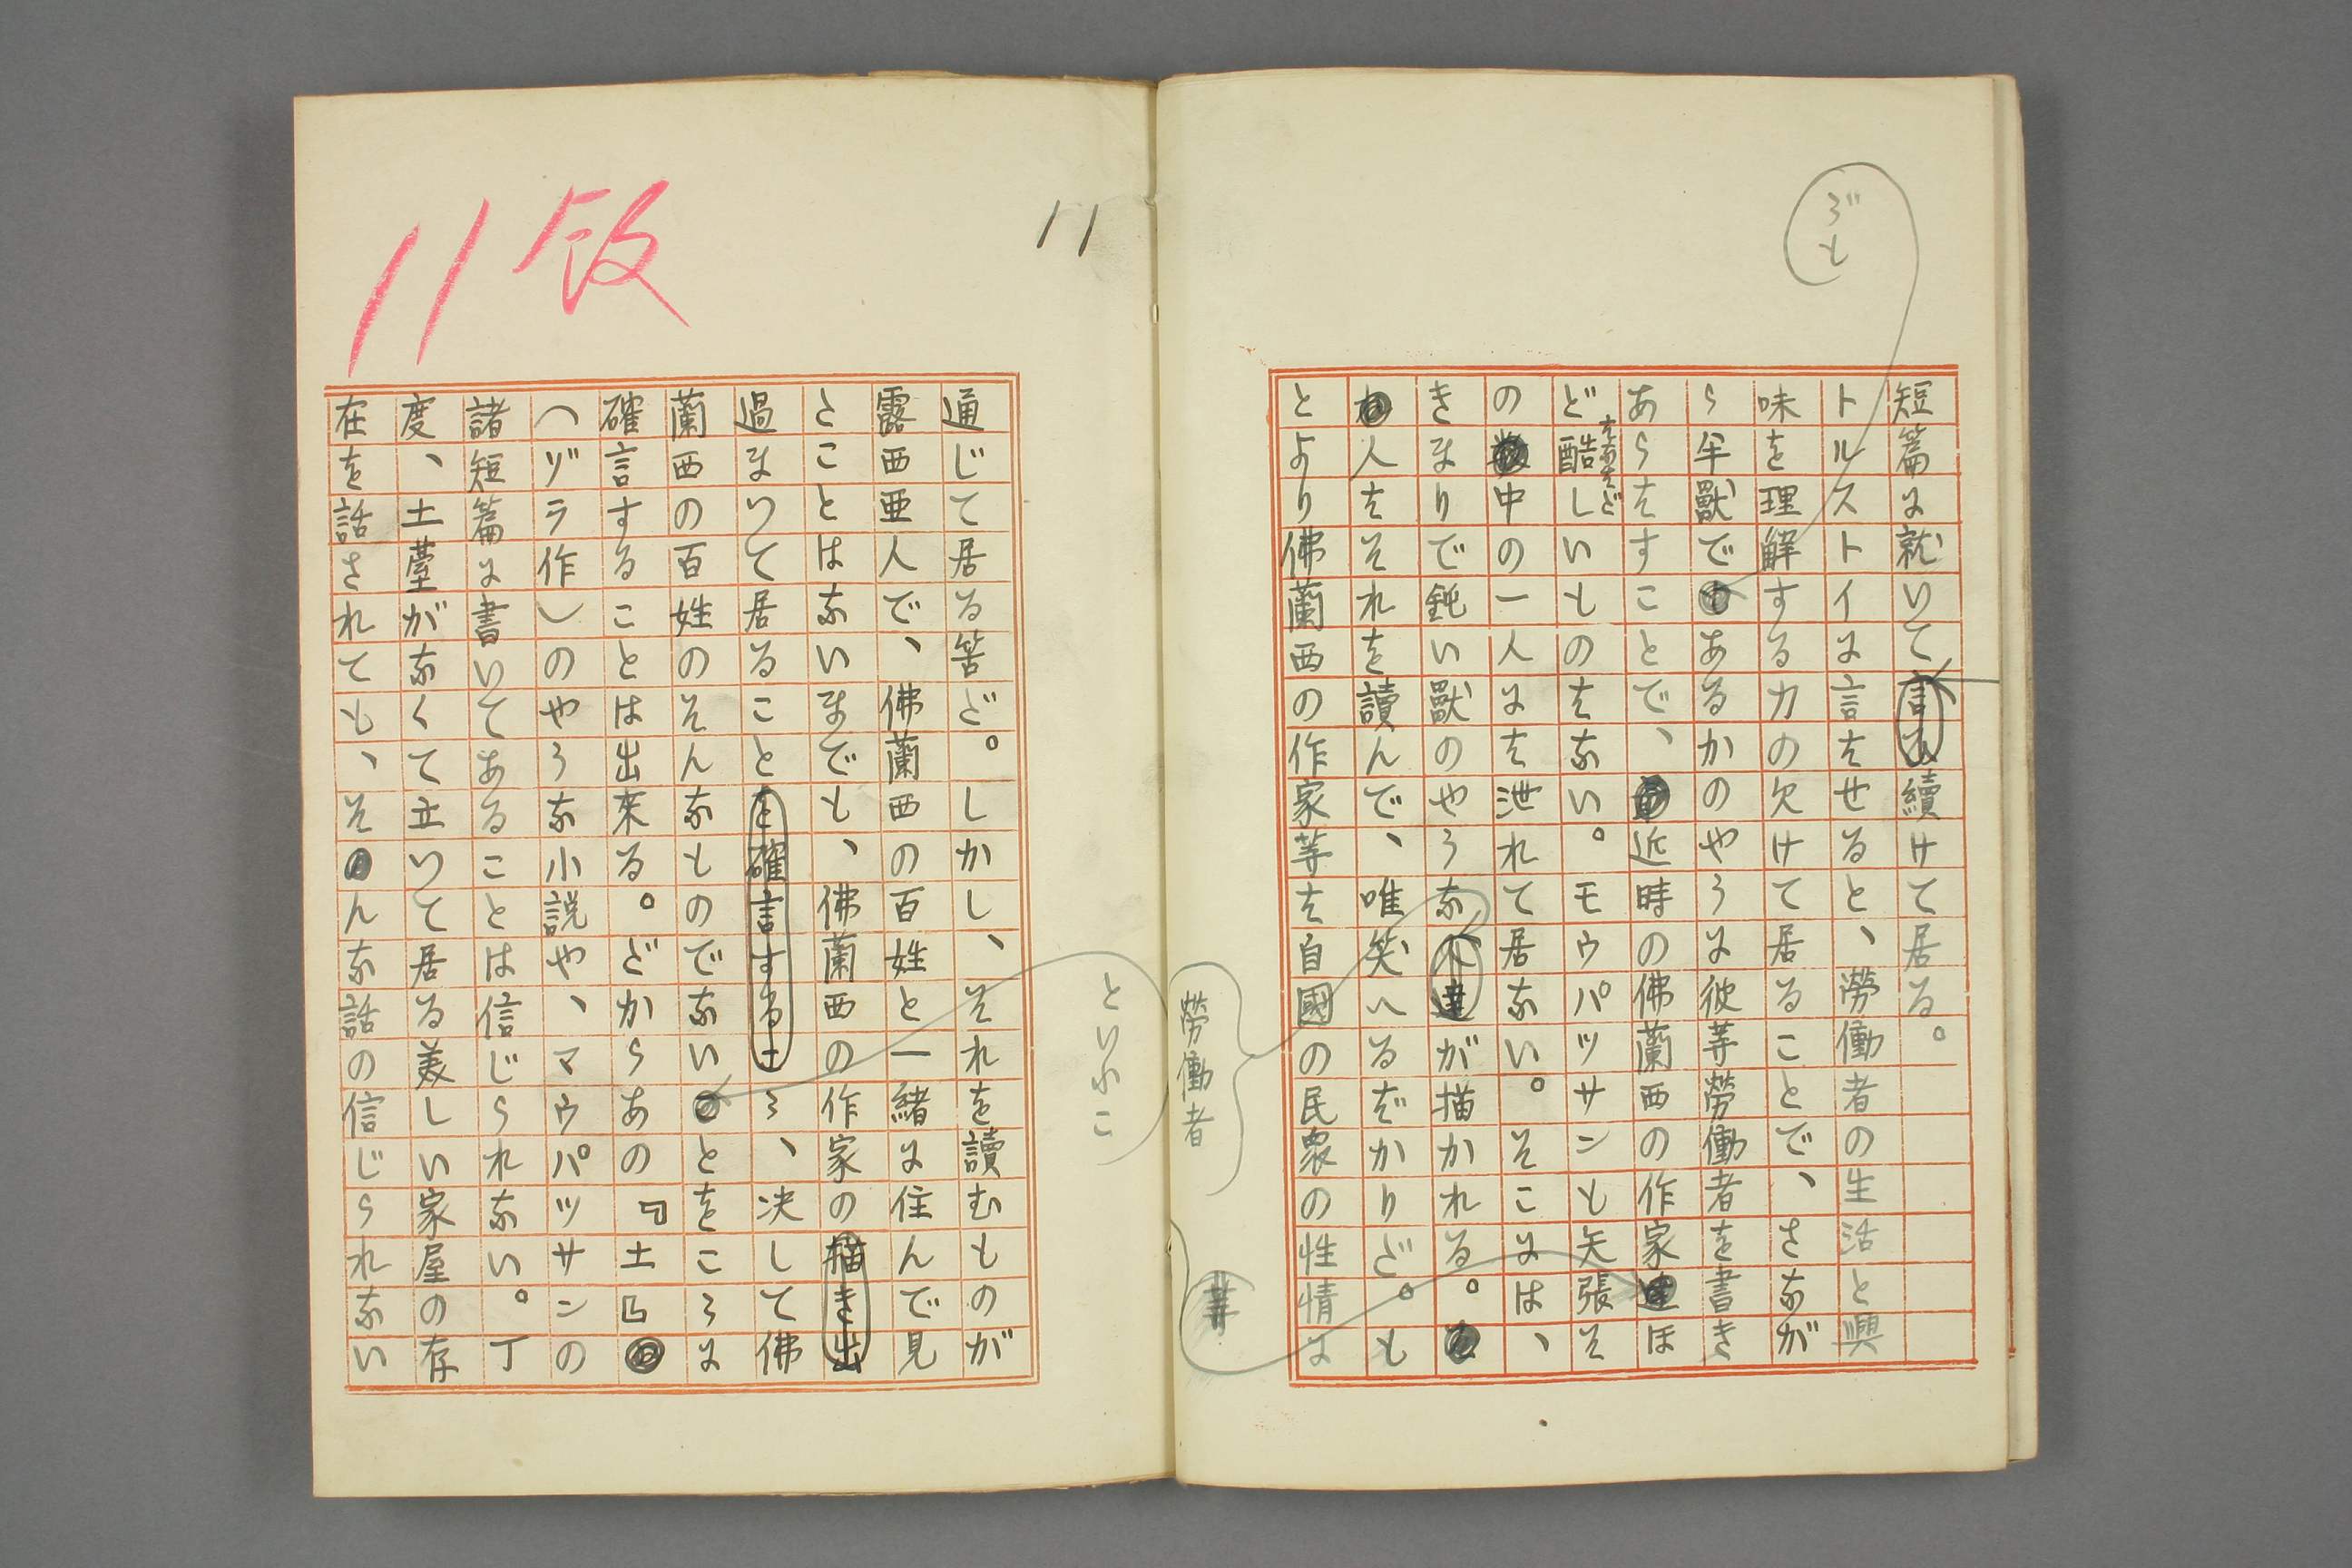 ゞも
短篇に就いて言ひ續けて居る。
トルストイに言はせると、勞働者の生活と興
味を理解する力の欠けて居ることで、さなが
ら半獸であるかのやうに彼等勞働者を書き
あらはすことで、近時の佛蘭西の作家ほ
ど酷しいものはない。モウパツサンも矢張そ
はなはだ
の中の一人には泄れて居ない。そこには、
きまりで鈍い獸のやうな人達が描かれる。
人はそれを讀んで、唯笑へるばかりだ。も
とより佛蘭西の作家等は自國の民衆の性情に
勞働者
等
11
といふこ
11
通じて居る筈だ。しかし、それを讀むものが
露西亜人で、佛蘭西の百姓と一緒に住んで見
たことはないまでも、佛蘭西の作家の描き出
過まつて居ることを確言する、決して佛
蘭西の百姓のそんなものでないとをこゝに
確言することは出來る。だからあの『土』
(ゾラ作)のやうな小説や、マウパツサンの
諸短篇に書いてあることは信じられない。丁
度、土臺がなくて立つて居る美しい家屋の存
在を話されても、そんな話の信じられない